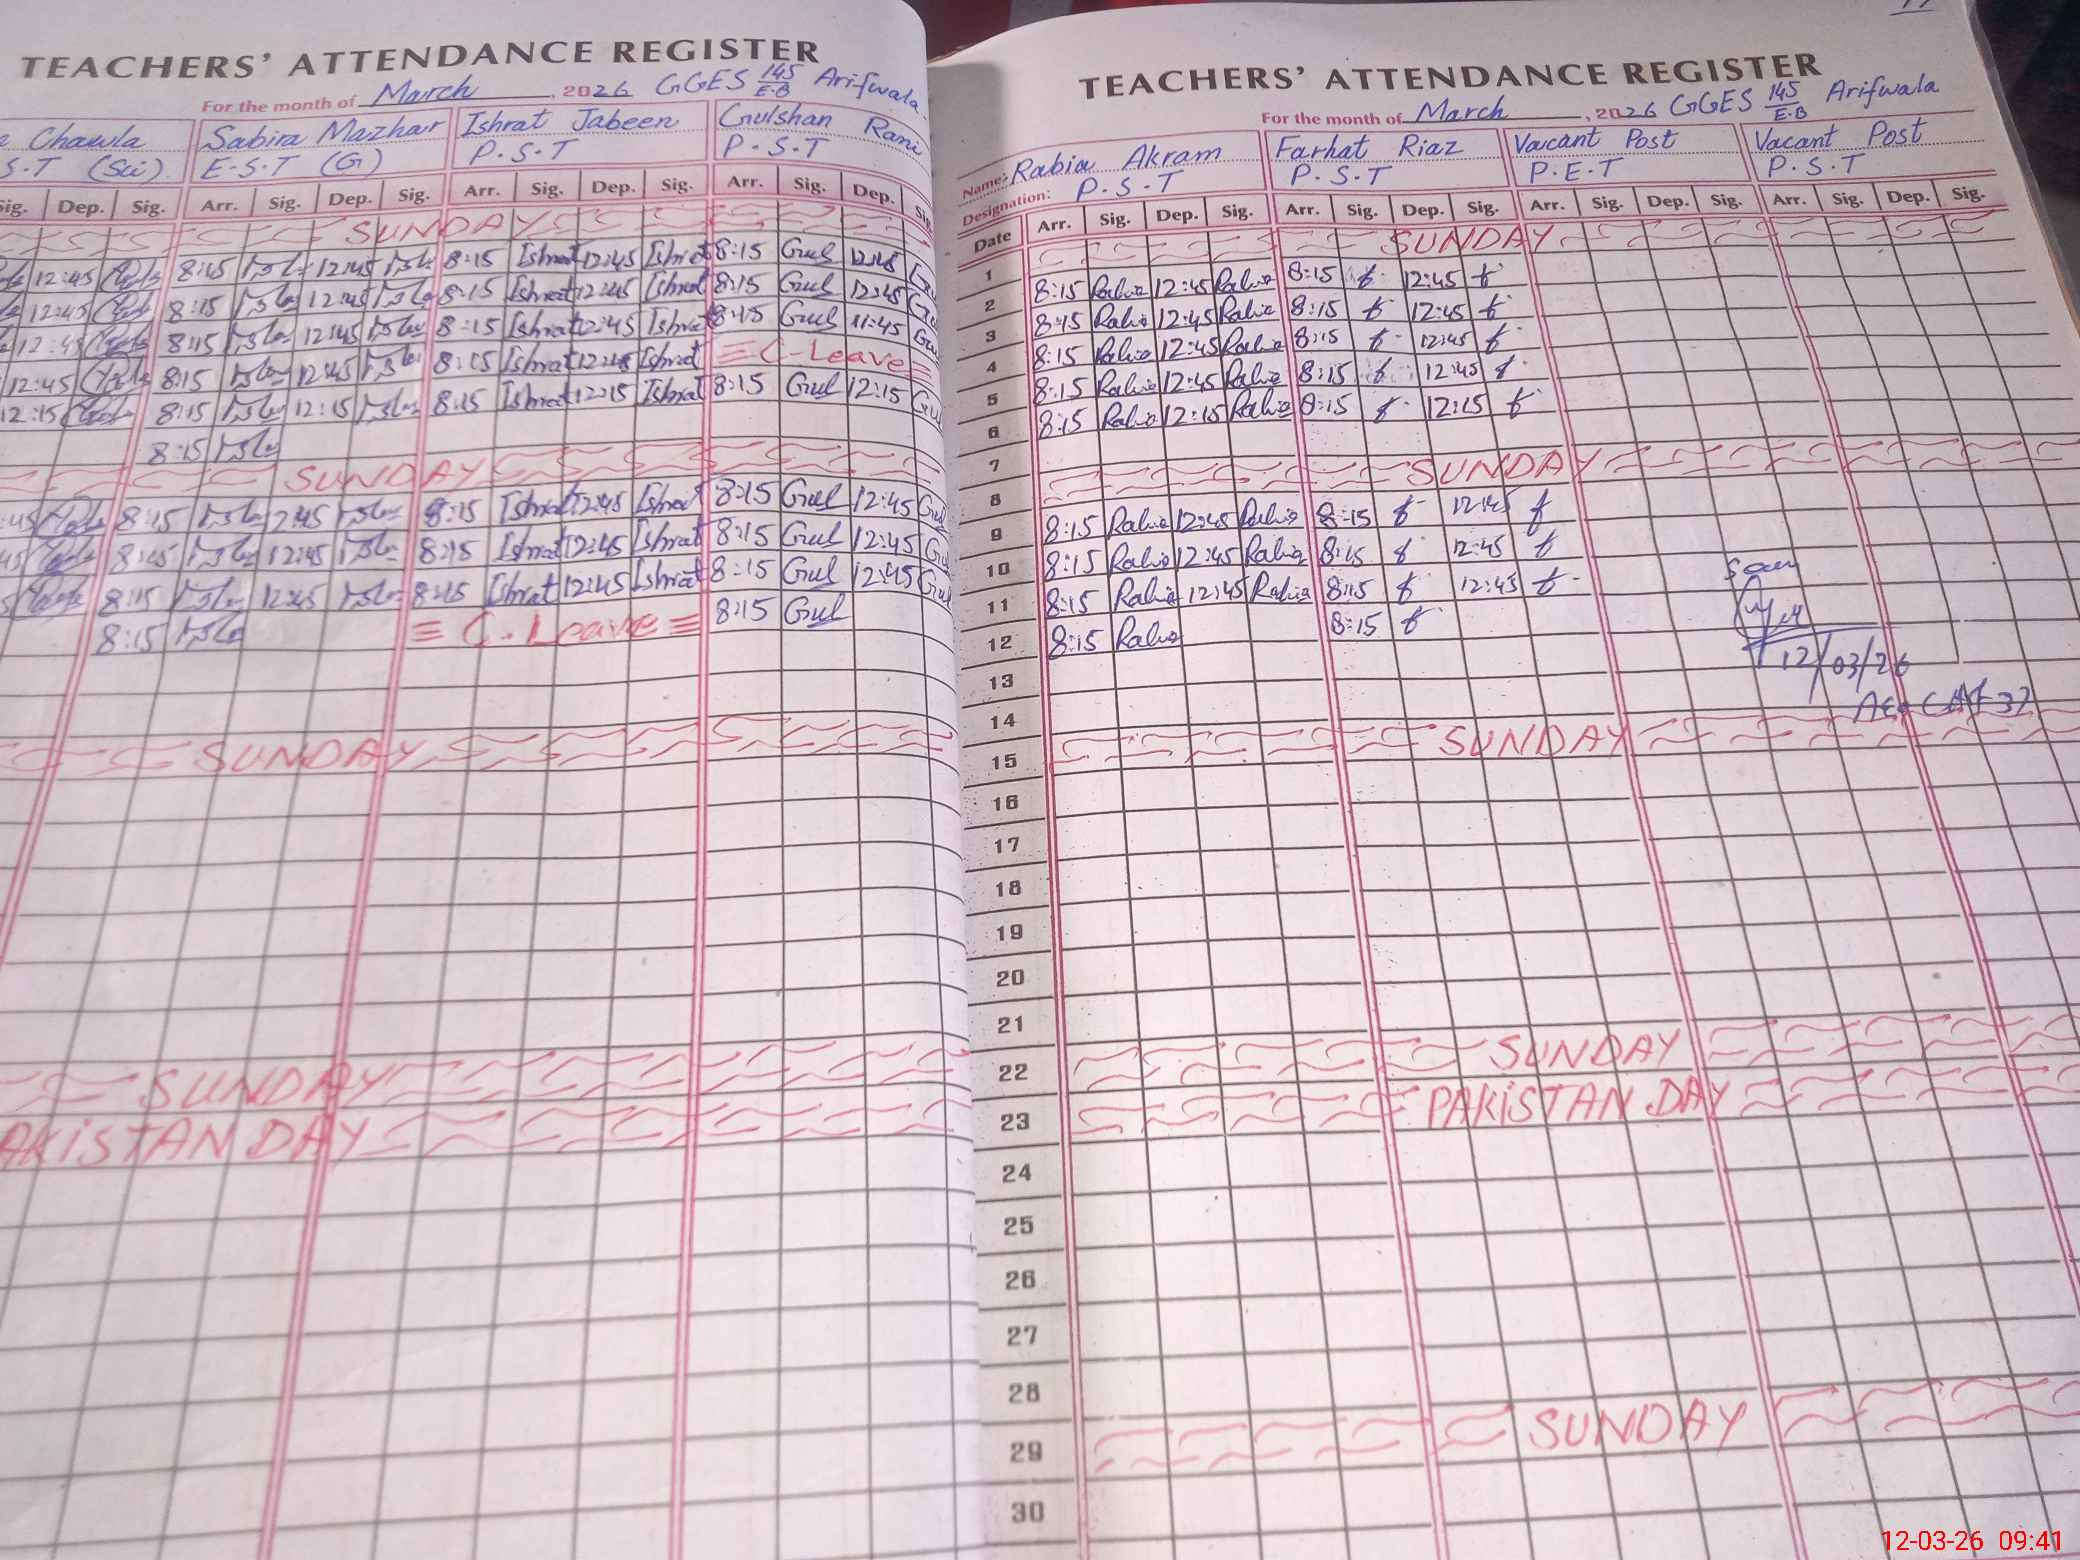 TEACHERS' ATTENDANCE REGISTER
For the month of March, 2026 GGES 145/E.B Arifwala
Chawla Sabira Mazhar Ishrat Jabeen Gulshan Rani
S.T (Sci) E.S.T (G) P.S.T P.S.T
Sig. Dep. Sig. Arr. Sig. Dep. Sig. Arr. Sig. Dep. Sig. Arr. Sig. Dep.
SUNDAY
12:45 8:15 12:45 8:15 Ishrat 12:45 Ishrat 8:15 Gul 12:45
12:45 8:15 12:45 8:15 Ishrat 12:45 Ishrat 8:15 Gul 12:45
12:45 8:15 12:45 8:15 Ishrat 12:45 Ishrat 8:15 Gul 11:45
12:45 8:15 12:45 8:15 Ishrat 12:45 Ishrat C-Leave
12:15 8:15 12:15 8:15 Ishrat 12:15 Ishrat 8:15 Gul 12:15
8:15
SUNDAY
:45 8:15 12:45 8:15 Ishrat 12:45 Ishrat 8:15 Gul 12:45 Gul
45 8:15 12:45 8:15 Ishrat 12:45 Ishrat 8:15 Gul 12:45
8:15 12:45 8:15 Ishrat 12:45 Ishrat 8:15 Gul 12:45 Gul
8:15 C-Leave 8:15 Gul
SUNDAY
SUNDAY
AKISTAN DAY
TEACHERS' ATTENDANCE REGISTER
For the month of March, 2026 GGES 145/E.B Arifwala
Name: Rabia Akram Farhat Riaz Vacant Post Vacant Post
Designation: P.S.T P.S.T P.E.T P.S.T
Date Arr. Sig. Dep. Sig. Arr. Sig. Dep. Sig. Arr. Sig. Dep. Sig. Arr. Sig. Dep. Sig.
1 SUNDAY
2 8:15 Rabia 12:45 Rabia 8:15 f 12:45 f
3 8:15 Rabia 12:45 Rabia 8:15 f 12:45 f
4 8:15 Rabia 12:45 Rabia 8:15 f 12:45 f
5 8:15 Rabia 12:45 Rabia 8:15 f 12:45 f
6 8:15 Rabia 12:15 Rabia 8:15 f 12:15 f
7
8 SUNDAY
9 8:15 Rabia 12:45 Rabia 8:15 f 12:45 f
10 8:15 Rabia 12:45 Rabia 8:15 f 12:45 f
11 8:15 Rabia 12:45 Rabia 8:15 f 12:45 f
12 8:15 Rabia 8:15 f
12/03/26
13
14
15 SUNDAY
16
17
18
19
20
21
22 SUNDAY
23 PAKISTAN DAY
24
25
26
27
28
29 SUNDAY
30
12-03-26 09:41